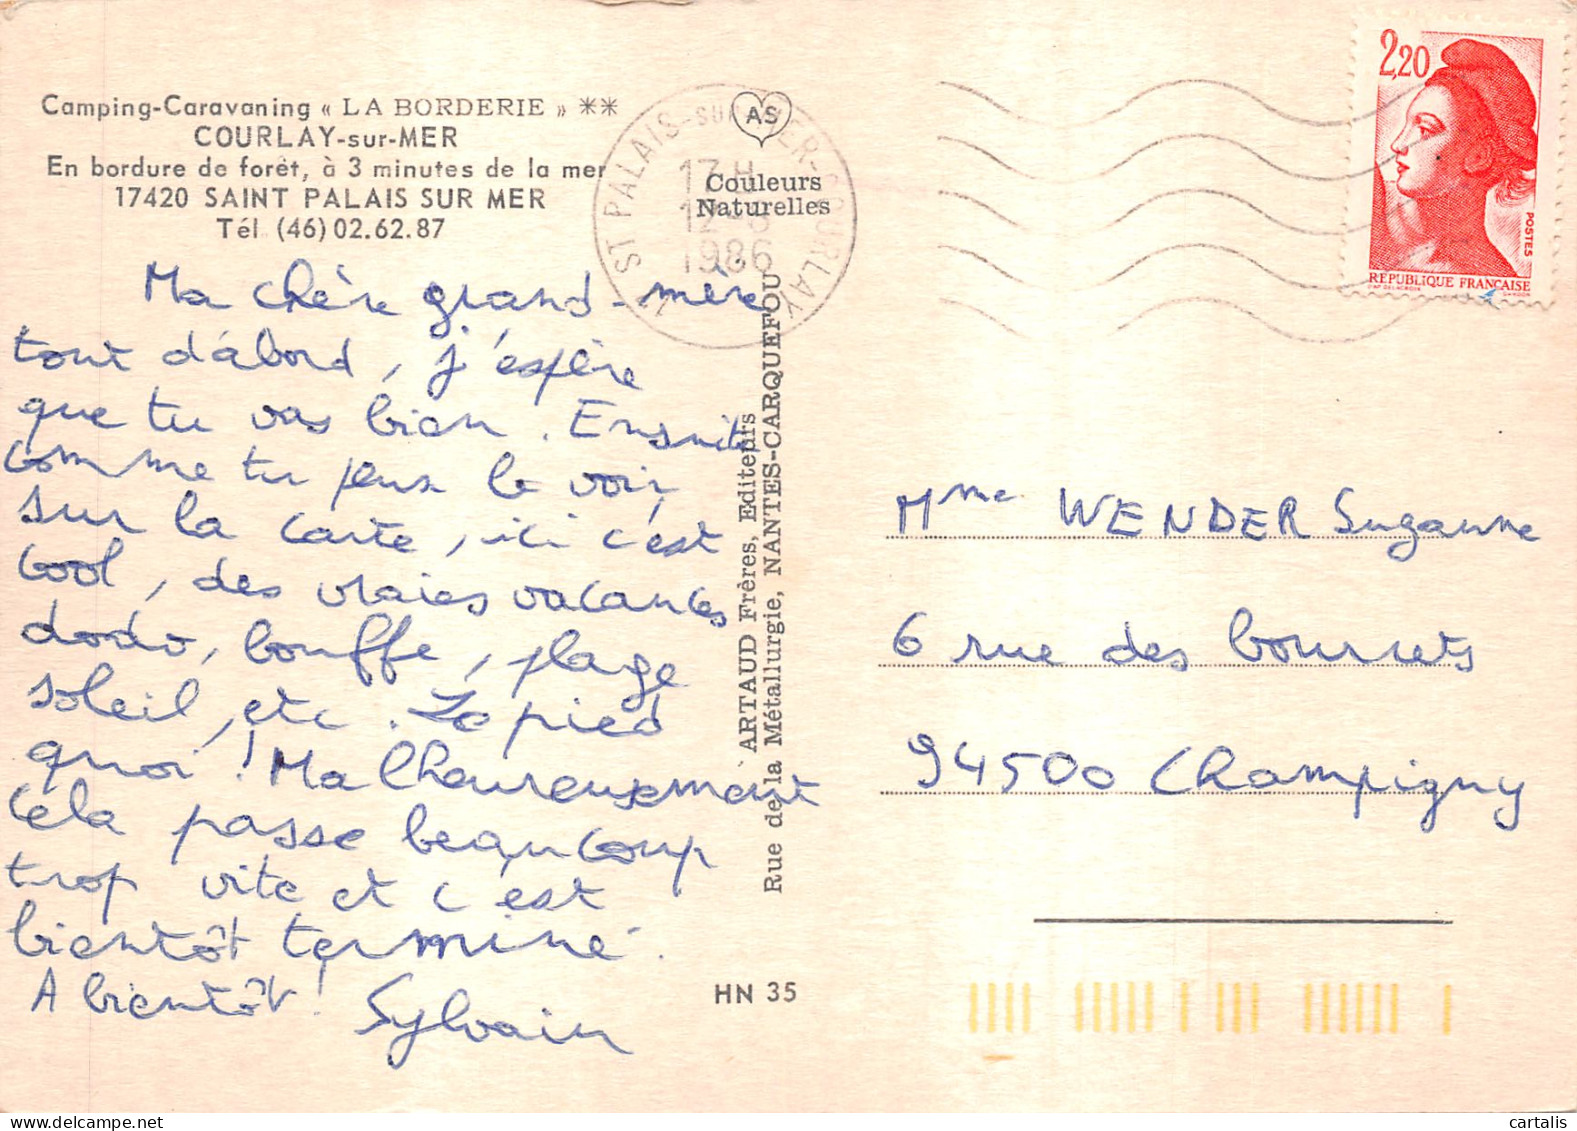 Camping-Caravaning « LA BORDERIE » **
COURLAY-sur-MER
En bordure de forêt, à 3 minutes de la mer
17420 SAINT PALAIS SUR MER
Tél (46) 02.62.87
Ma chère grand-mère
tout d'abord, j'espère
que tu vas bien. Ensuite
comme tu peux le voir,
sur la carte, ici c'est
cool, des vraies vacances
dodo, bouffe, plage
soleil, etc. Le pied
quoi! Malheureusement
cela passe beaucoup
trop vite et c'est
bientôt terminé.
A bientôt!
Sylvain
17 ST PALAIS-SUR-MER-COURLAY
17 H
1986
AS
Couleurs
Naturelles
ARTAUD Frères, Editeurs
Rue de la Métallurgie, NANTES-CARQUEFOU
HN 35
2,20
POSTES
REPUBLIQUE FRANÇAISE
Mme WENDER Suzanne
6 rue des bourrets
94500 Champigny
cartalis